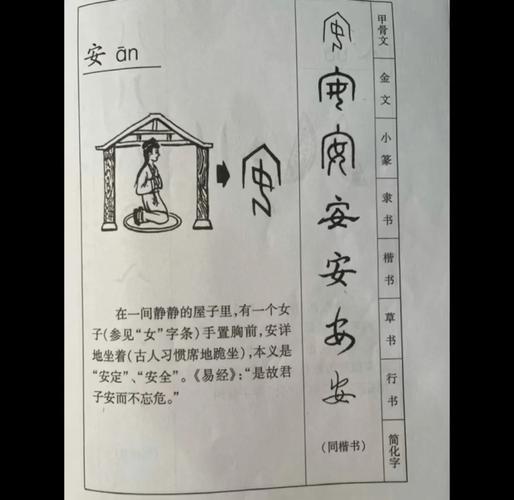 安 ān
在一间静静的屋子里,有一个女
子(参见“女”字条)手置胸前,安详
地坐着(古人习惯席地跪坐),本义是
“安定”、“安全”。《易经》:“是故君
子安而不忘危。”
安
安
安
安
安
安
安
(同楷书)
甲骨文
金文
小篆
隶书
楷书
草书
行书
简化字